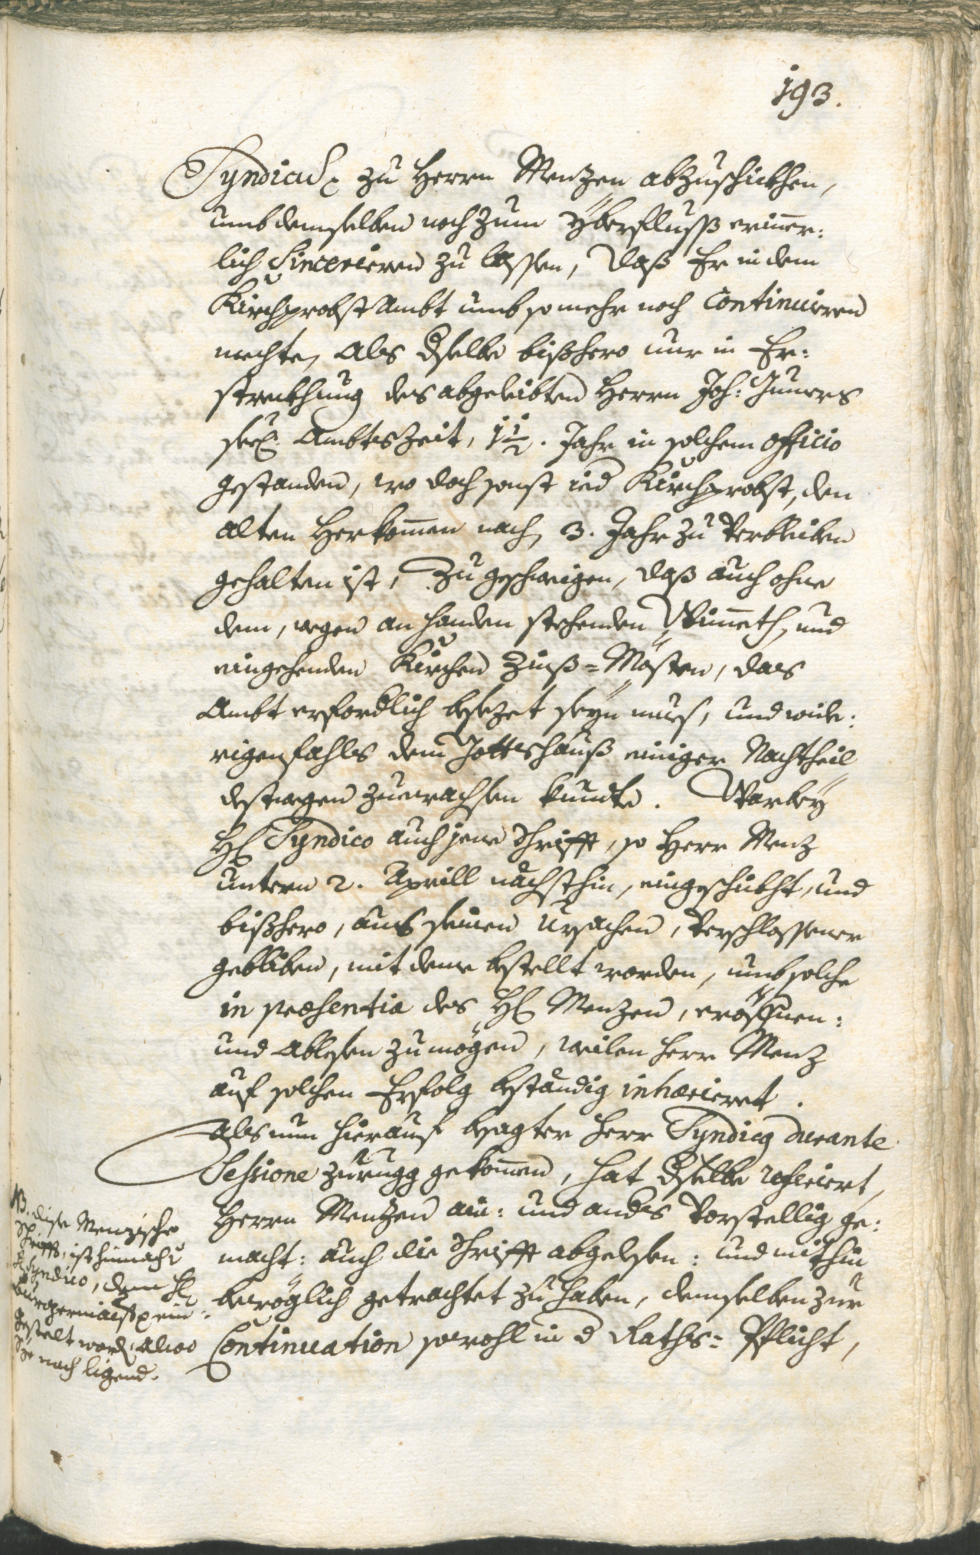 193.
Syndicus, zu Herrn Menzen abzuschickhen,
umb demselben noch zum yberfluss erinner:
lich Sincerieren zu lassen, dass Er in dem
Kirchprobst Ambt umb so mehr noch Continuieren
mechte, Als dselbe bisshero nur in Er:
streckhung des abgeleibten Herrn Joh: Inners
seel. Ambtszeit, 1 1/2. Jahr in solchem officio
gestanden, wo doch sonst ied Kirchprobst, dem
alten Herkomen nach, 3. Jahr zu Verbleiben
gehalten ist, Zugeschweigen, dass auch ohne
dem, wegen an handen stehenden Wimmeth, und
eingehenden Kirchen Zinss=Mösten, das
Ambt erfordlich besezet seyn mues, und wide:
rigenfahls dem Gottshauss einiger Nachtheil
destwegen zuewachsen kundte. Warbey
H: Syndico auch jene Schrifft, so Herr Menz
untern 2. Aprill nächsthin, eingeschickht, und
bisshero, aus seinen Ursachen, Verschlossener
gebliben, mit deme bestellt worden, umb solche
in præsentia des H: Menzen, eröffnen:
und Ablesen zu mögen, weilen Herr Menz
auf solchen Erfolg beständig inhærieret.
Als nun hierauf besagter Herr Syndicq durante
Sessione zurugg gekomen, hat dselbe referiert,
Herrn Menzen ain: und anders Vorstellig ge:
macht: auch die Schrifft abgelesen: und mithin
beweglich getrachtet zu haben, demselben zur
Continuation sowohl in d Raths= Pflicht,
NB. dise Menzische
Schrifft, ist hinnach
H: Syndico, dem H:
Burgermaister ein:
gestelt word: alwo
Sye noch ligend.